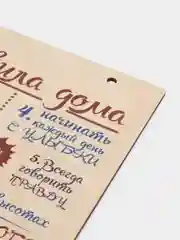 ила дома
4. начинать
каждый день
с улыбки
5. Всегда
говорить
правду
высотах